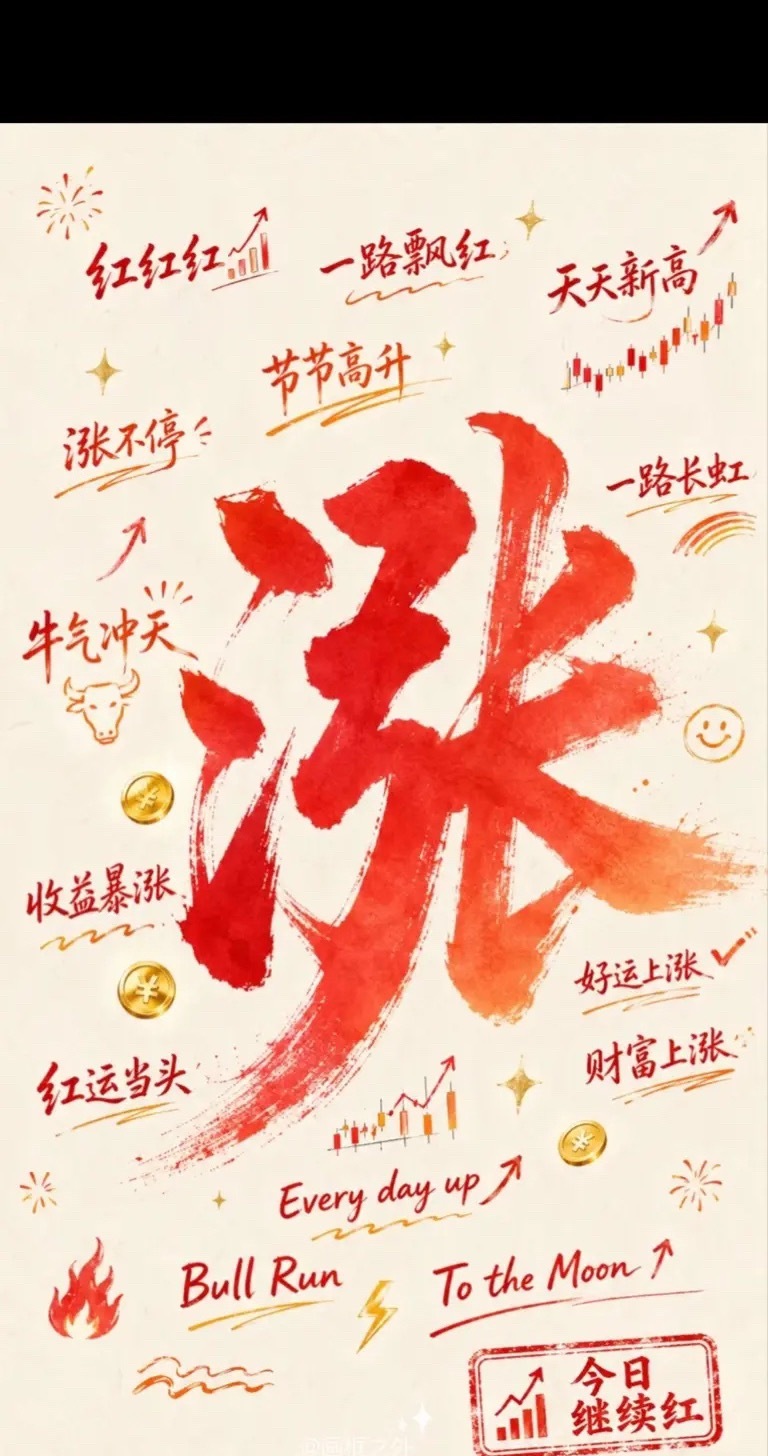 红红红
一路飘红
天天新高
节节高升
涨不停
一路长虹
涨
牛气冲天
收益暴涨
好运上涨
红运当头
财富上涨
Every day up
Bull Run
To the Moon
今日
继续红
@画框之外